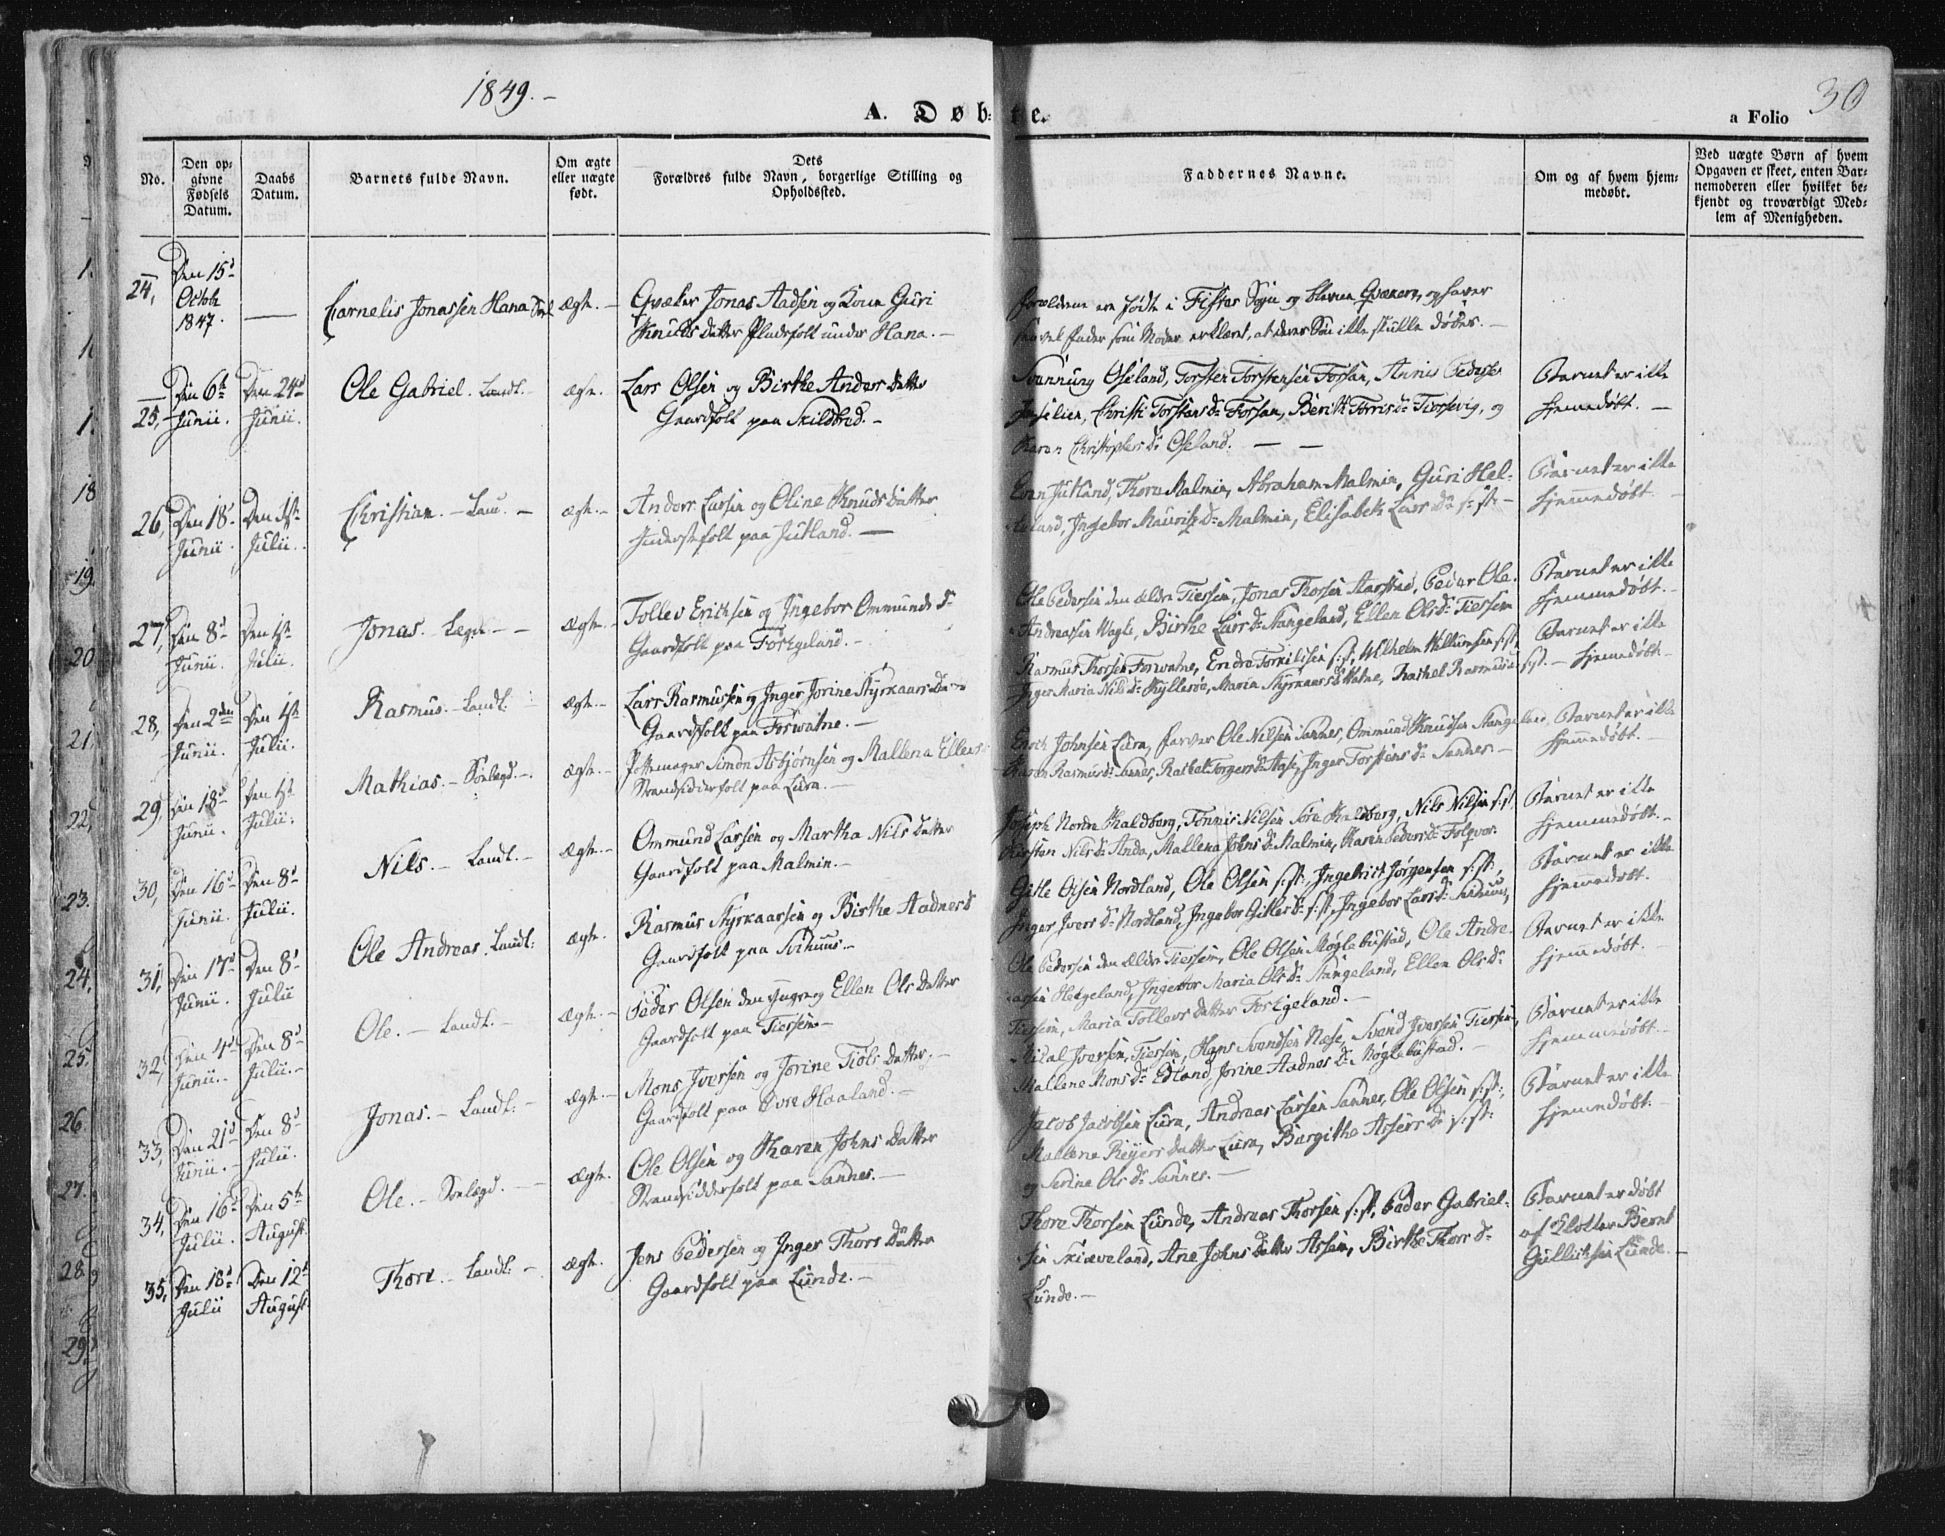 1849.-
30
A. Døb:te.
a Folio
No.
Den op=
givne
Fødsels
Datum.
Daabs
Datum.
Barnets fulde Navn.
Om ægte
eller uægte
født.
Dets
Forældres fulde Navn, borgerlige Stilling og
Opholdssted.
Faddernes Navne.
Om og af hvem hjem=
medøbt.
Ved uægte Børn af hvem
Opgaven er skeet, enten Bar=
nemoderen eller hvilket be=
kjendt og troværdigt Med=
lem af Menigheden.
24,
Den 15d
Octob
1847.
Cornelis Jonassen Hana
ægte.-
Qvæker Jonas Aadsen og Kone Guri
Knuds Datter Pladsfolk under Hana.-
Forældrene ere fødte i Sogn og bleven Qvækere, og haver
saavel Fader som Moder erklært, at deres Søn ikke skulle døbes.-
25,
Den 6te
Junii.
Den 24d
Junii.
Ole Gabriel. Landt.
ægte.
Lars Olsen og Birthe Anders Datter
Gaardfolk paa Skildbred.-
Svænnung Oseland, Torsten Torstensen Forsan, Annis Peders
Christi Torstens Dr Forsan, Berith Torris Dr Tiorsvig, og
Karen Christophers Dr Oseland.
Barnet er ikke
hjemedøbt.-
26,
Den 18d
Junii.
Den 1ste
Julii.
Christian.-
ægte.-
Anders Larsen og Oline Knuds Datter
Inderstfolk paa Jutland.-
Even Jutland, Thore Malmin, Abraham Malmin, Guri Hel-
land, Ingebor Maurits Dr Malmin, Elisabeth Lars Dr s:st:-
Barnet er ikke
hjemmedøbt.
27,
Den 8d
Junii.
Den 1ste
Julii.
Jonas.
ægte.
Tollev Erichsen og Ingebor Ommunds Dr
Gaardfolk paa Foskeland.-
Ole Pedersen den ældre Tiessem, Jonas Thorsen Aarstad, Peder Ole.
Andreassen Vagle, Birthe Lars Dr Stangeland, Ellen Ols Dr Tiessem
Barnet er ikke
hjemmedøbt.-
28,
Den 2den
Junii.
Den 1ste
Julii.
Rasmus.- Landt.
ægte.-
Lars Rasmussen og Inger Jorine Styrkaars Da
Gaardfolk paa Forvatne.-
Rasmus Thorsen Forvatne, Endre Torkildsen s:st, Wilhelm Willumsen s:st,
Inger Maria Nils Dr Kyllesøe, Maria Styrkaars Dr Vatne, Rachel Rasmus s:st.-
Barnet er ikke
hjemedøbt.-
29,
Den 18d
Junii.
Den 1ste
Julii.
Mathias.-
ægte.-
Pottemager Simon Asbjørnsen og Mallena Ellens
Strandsidderfolk paa Lura.-
Enoch Johnsen Lura, farver Ole Nilsen Sannes, Ommund Knudsen Stangeland,
Karen Rasmus Dr Sannes, Rachel Torgers Dr Aase, Inger Torstens Dr Sannes.-
Barnet er ikke
hjemmedøbt.
30,
Den 16d
Junii.
Den 8d
Julii.
Nils.- Landt.
ægte.-
Ommund Larsen og Martha Nils Datter
Gaardfolk paa Malmin.-
Joseph Nordre Kaldberg, Tønnis Nilsen Søre Kaldberg, Nils Nilsen s:st
Nils Dr Anda, Mallena Johns Dr Malmin, Karen Peders Dr
Barnet er ikke
hjemmedøbt.-
31,
Den 17d
Junii.
Den 8d
Julii
Ole Andreas. Landt:
ægte.
Rasmus Styrkaarsen og Birthe Aadnes D
Gaardfolk paa Svihuus.-
Gitle Olsen Nordland, Ole Olsen s:st:, Ingebrict Jørgensen s:st:,
Inger Ivers Dr Nordland, Ingebor Gitles Dr s:st, Ingebor Lars Dr
Barnet er ikke
hjemmedøbt.
32,
Den 4d
Junii.-
Den 8d
Julii.-
Ole.- Landt.-
ægte.-
Peder Olsen den yngre og Ellen Ols Datter
Gaardfolk paa Tiessem.-
Ole Pedersen den ældre Tiessem, Ole Olsen Møglebustad, Ole Andre.
assen Helgeland, Ingebor Maria Ols Dr Stangeland, Ellen Ols Dr
Tiessem, Maria Tollevs Datter Foskeland.-
Barnet er ikke
hjemmedøbt.-
33,
Den 21d
Junii.-
Den 8d
Julii.
Jonas.- Landt.-
ægte.-
Mons Iversen og Jorine Tiøls Datter.-
Gaardfolk paa Øvre Haaland.-
Mical Iversen Tiessem, Hans Svendsen Næse, Svend Iversen Tiessem,
Mallene Mons Dr Edland, Jorine Aadnes Dr Møglebustad.-
Barnet er ikke
hjemmedøbt.-
34,
Den 16d
Julii.
Den 5te
August.
Ole.-
ægte.
Ole Olsen og Karen Johns Datter
Strandsidderfolk paa Sannes.-
Jacob Jacobsen Lura, Andreas Larsen Sannes, Ole Olsen s:st:,
Mallena Reiers Datter Lura, Bergithe Assers Dr s:st:
og Serine Ols Dr Sannes.-
Barnet er ikke
hjemedøbt.-
35,
Den 18d
Julii
Den 12te
August.
Thore.- Landt.-
ægte.
Jens Pedersen og Inger Thors Datter
Gaardfolk paa Lunde.-
Thore Thorsen Lunde, Andreas Thorsen s:st, Peder Gabriel-
sen Skiæveland, Ane Johns Datter Assen, Birthe Thors Dr
Lunde.-
Barnet er døbt
af Klokker Bernt
Gullichsen Lunde.-
18
19.
20
21.
22,
23.
24,
25.
26.
27.
28.
29,